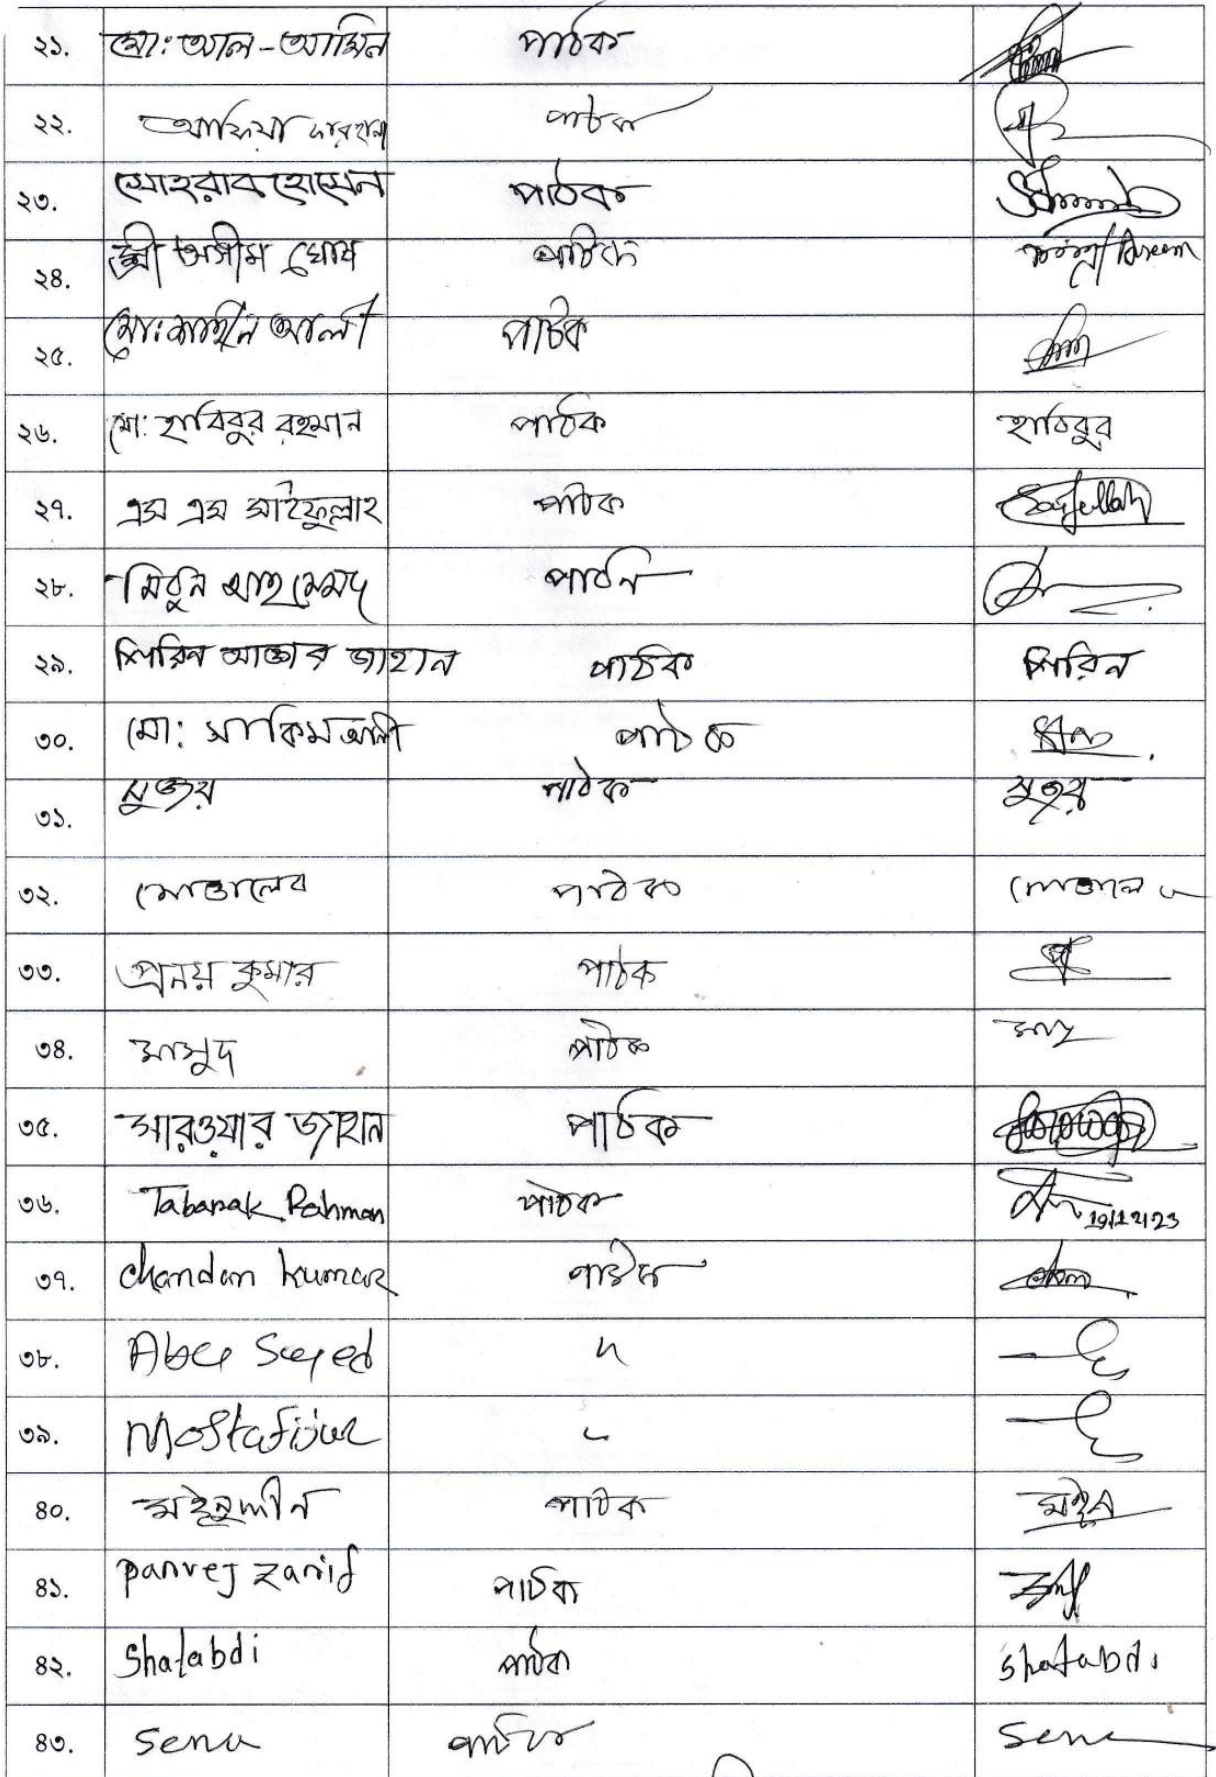 ২১. মো: আল-আমিন পাঠক
২২. আফিয়া ফারহানা পাঠক
২৩. সোহরাব হোসেন পাঠক
২৪. শ্রী অসীম ঘোষ পাঠক Aseem
২৫. মো: শাহীন আলী পাঠক
২৬. মো: হাবিবুর রহমান পাঠক হাবিবুর
২৭. এস এম সাইফুল্লাহ পাঠক Saifullah
২৮. মিঠুন আহমেমদ পাঠক
২৯. শিরিন আক্তার জাহান পাঠক শিরিন
৩০. মো: সাকিম আলী পাঠক
৩১. সুজয় পাঠক সুজয়
৩২. মোত্তালেব পাঠক মোত্তালেব
৩৩. প্রনয় কুমার পাঠক
৩৪. মাসুদ পাঠক
৩৫. সারওয়ার জাহান পাঠক
৩৬. Tabarak Rahman পাঠক 19/12/23
৩৭. chandan kumar পাঠক
৩৮. Abu Sayed "
৩৯. Mostafijur "
৪০. মইনুদ্দীন পাঠক মইন
৪১. parvej zarif পাঠক
৪২. Shatabdi পাঠক Shatabdi
৪৩. Sena পাঠক Sena